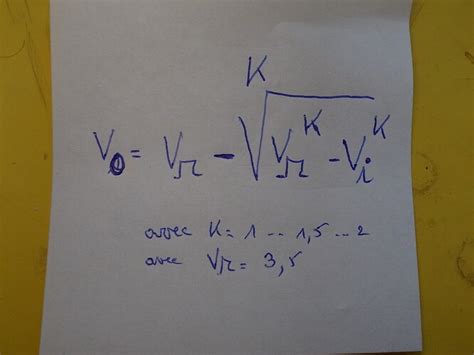 V₀ = Vr - ᴷ√(Vrᴷ - Viᴷ)
avec K = 1 -- 1,5 ... 2
avec Vr = 3,5